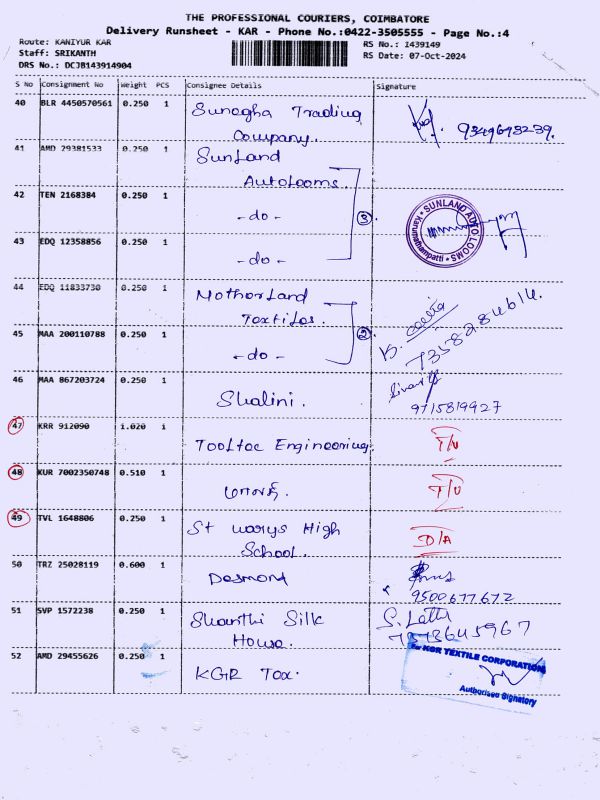 THE PROFESSIONAL COURIERS, COIMBATORE
Delivery Runsheet - KAR - Phone No.:0422-3505555 - Page No.:4
Route: KANIYUR KAR
RS No.: I439149
Staff: SRIKANTH
RS Date: 07-Oct-2024
DRS No.: DCJB143914904
S No Consignment No Weight PCS Consignee Details Signature
40 BLR 4450570561 0.250 1 Sunegha Trading
Company. 9349698239.
41 AMD 29381533 0.250 1 SunLand
AutoLooms.
42 TEN 2168384 0.250 1 -do- 3
SUNLAND AUTO LOOMS
Karumathampatti
43 EDQ 12358856 0.250 1 -do-
44 EDQ 11833730 0.250 1 MotherLand
Textiles. 2
45 MAA 200110788 0.250 1 -do- 7358284614.
46 MAA 867203724 0.250 1 Shalini.
9715819927
47 KRR 912090 1.020 1 Tooltec Engineering. T/U
48 KUR 7002350748 0.510 1 T/U
49 TVL 1648806 0.250 1 St warys High
School. D/A
50 TRZ 25028119 0.600 1 Desmond
9500677672
51 SVP 1572238 0.250 1 Shanthi Silk
House. S. Latha
7373645967
52 AMD 29455626 0.250 1 KGR Tex.
For KGR TEXTILE CORPORATION
Authorised Signatory